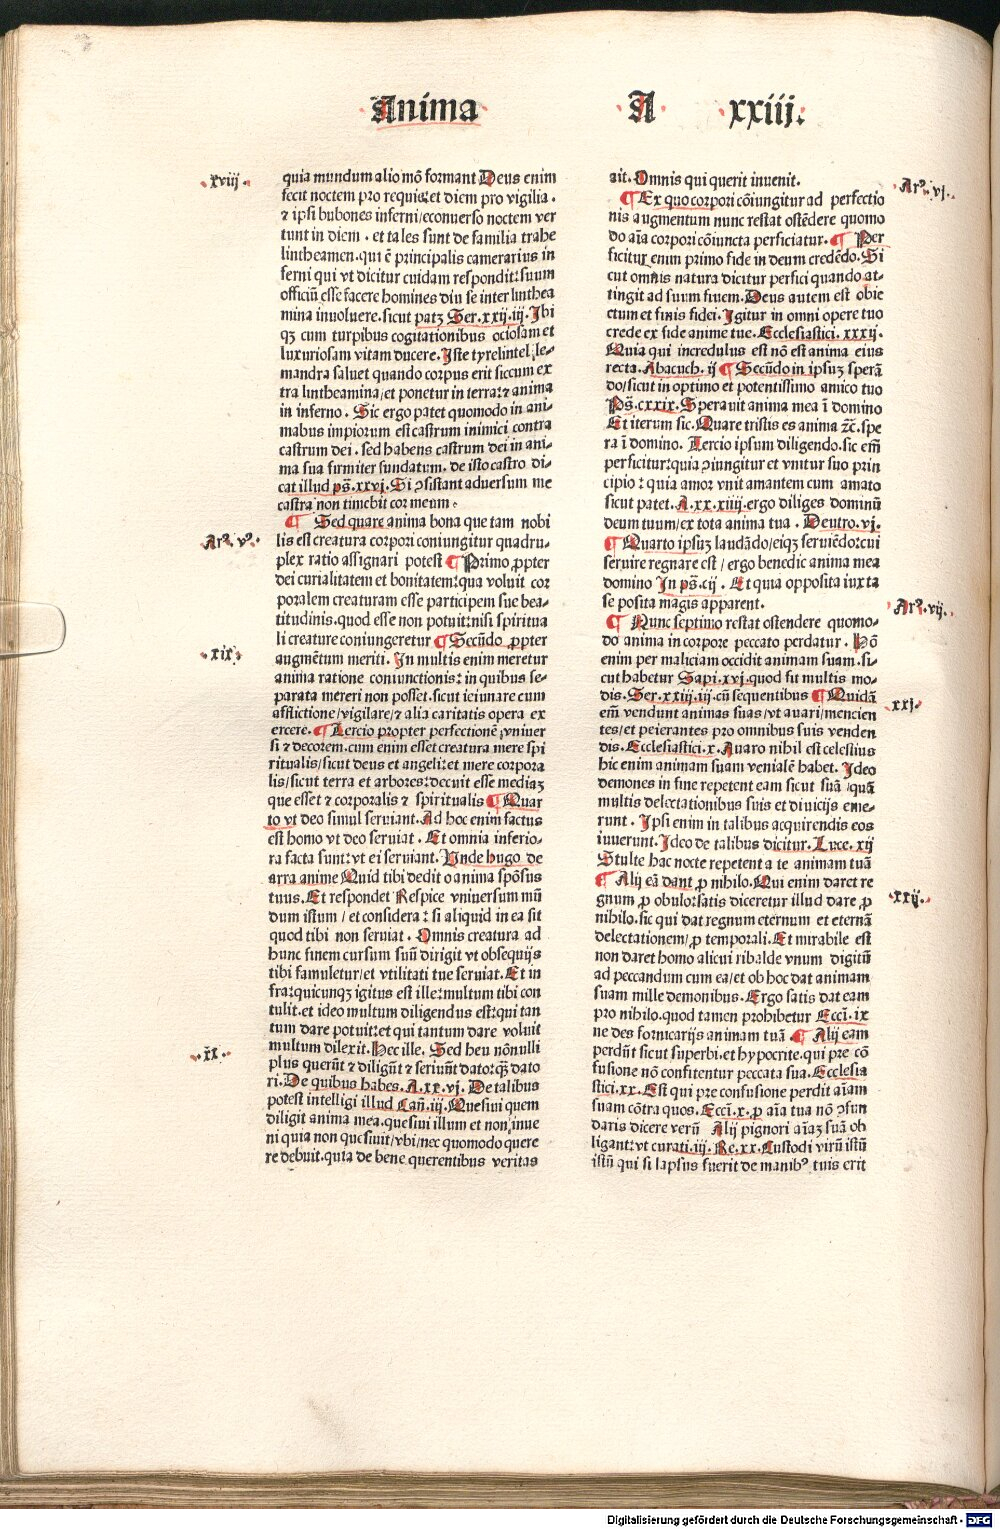 Anima A xxiij.
.xviij.
quia mundum alio mō formant Deus enim
fecit noctem pro requie: et diem pro vigilia.
⁊ ipsi bubones inferni/econuerso noctem ver
tunt in diem. et tales sunt de familia trahe
lintheamen. qui ē principalis camerarius in
ferni qui vt dicitur cuidam respondit: suum
officiū esse facere homines diu se inter linthea
mina inuoluere. sicut patꝫ Ser. xxij. iij. Ibi
qꝫ cum turpibus cogitationibus ociosam et
luxuriosam vitam ducere. Iste tyrelintel le-
mandra saluet quando corpus erit siccum ex
tra lintheamina/et ponetur in terra: ⁊ anima
in inferno. Sic ergo patet quomodo in ani-
mabus impiorum est castrum inimici contra
castrum dei. sed habens castrum dei in ani-
ma sua firmiter fundatum. de isto castro di-
cat illud pš. xxvj. Si ↄsistant aduersum me
castra non timebit cor meum.
Arꝰ. vꝰ.
¶ Sed quare anima bona que tam nobi
lis est creatura corpori coniungitur quadru-
plex ratio assignari potest ¶ Primo ꝓpter
dei curialitatem et bonitatem: qua voluit cor
poralem creaturam esse participem sue bea-
titudinis. quod esse non potuit: nisi spiritua
li creature coniungeretur ¶ Secūdo ꝓpter
.xix.
augmētum meriti. In multis enim meretur
anima ratione coniunctionis: in quibus se-
parata mereri non posset. sicut ieiunare cum
afflictione/vigilare/⁊ alia caritatis opera ex
ercere. ¶ Tercio propter perfectionē vniuer
si ⁊ decorem. cum enim esset creatura mere spi
ritualis/sicut deus et angeli: et mere corpora
lis/sicut terra et arbores: decuit esse mediaꝫ
que esset ⁊ corporalis ⁊ spiritualis ¶ Quar
to vt deo simul seruiant. Ad hoc enim factus
est homo vt deo seruiat. Et omnia inferio-
ra facta sunt: vt ei seruiant. Vnde hugo de
arra anime Quid tibi dedit o anima spōsus
tuus. Et respondet Respice vniuersum mū
dum istum/et considera: si aliquid in ea sit
quod tibi non seruiat. Omnis creatura ad
hunc finem cursum suū dirigit vt obsequijs
tibi famuletur/et vtilitati tue seruiat. Et in
fra: quicunqꝫ igitus est ille: multum tibi con
tulit. et ideo multum diligendus est: qui tan
tum dare potuit: et qui tantum dare voluit
.xx.
multum dilexit. Hec ille. Sed heu nōnulli
plus querūt ⁊ diligūt ⁊ seriunt dato: qꝫ dato
ri. De quibus habes. A. xx. vj. De talibus
potest intelligi illud Cañ. iij. Quesiui quem
diligit anima mea. quesiui illum et non inue
ni quia non quesiuit/vbi/nec quomodo quere
re debuit. quia de bene querentibus veritas
ait. Omnis qui querit inuenit.
Arꝰ. vj.
¶ Ex quo corpori cōiungitur ad perfectio
nis augmentum nunc restat ostēdere quomo
do aīa corpori cōiuncta perficiatur. ¶ Per
ficitur enim primo fide in deum credēdo. Si
cut omnis natura dicitur perfici quando at-
tingit ad suum finem. Deus autem est obie
ctum et finis fidei. Igitur in omni opere tuo
crede ex fide anime tue. Ecclesiastici. xxxij.
Quia qui incredulus est nō est anima eius
recta. Abacuch. ij ¶ Secūdo in ipsuꝫ sperā
do/sicut in optimo et potentissimo amico tuo
Pš. cxxix. Sperauit anima mea ī domino
Et iterum sic. Quare tristis es anima ⁊c̄. spe
ra ī domino. Tercio ipsum diligendo. sic em̄
perficitur: quia ↄiungitur et vnitur suo prin
cipio: quia amor vnit amantem cum amato
sicut patet. A. xx. xiiij. ergo diliges dominū
deum tuum/ex tota anima tua. Deutro. vj.
¶ Quarto ipsuꝫ laudādo/eiqꝫ seruiēdo: cui
seruire regnare est/ergo benedic anima mea
domino In pš. cij. Et quia opposita iuxta
se posita magis apparent.
Arꝰ. vij.
¶ Nunc septimo restat ostendere quomo-
do anima in corpore peccato perdatur. Hō
enim per maliciam occidit animam suam. si-
cut habetur Sapi. xvj. quod fit multis mo-
dis. Ser. xxiij. iij. cū sequentibus ¶ Quidā
.xxj.
em̄ vendunt animas suas/vt auari/mencien
tes/et peierantes pro omnibus suis venden
dis. Ecclesiastici. x. Auaro nihil est celestius
hic enim animam suam venialē habet. Ideo
demones in fine repetent eam sicut suā quā
multis delectationibus suis et diuicijs eme-
runt. Ipsi enim in talibus acquirendis eos
iuuerunt. Ideo de talibus dicitur. Luce. xij
Stulte hac nocte repetent a te animam tuā
.xxij.
¶ Alij eā dant ꝓ nihilo. Qui enim daret re
gnum ꝓ obulo: satis diceretur illud dare ꝓ
nihilo. sic qui dat regnum eternum et eternā
delectationem/ꝓ temporali. Et mirabile est
non daret homo alicui ribalde vnum digitū
ad peccandum cum ea/et ob hoc dat animam
suam mille demonibus. Ergo satis dat eam
pro nihilo. quod tamen prohibetur Ecci. ix
ne des fornicarijs animam tuā ¶ Alij eam
perdūt sicut superbi. et hypocrite. qui pre cō
fusione nō confitentur peccata sua. Ecclesia
stici. xx. Est qui pre confusione perdit aīam
suam cōtra quos. Ecci. x. ꝓ aīa tua nō ↄfun
daris dicere verū Alij pignori aīaꝫ suā ob
ligant: vt curati. iij. Re. xx. Custodi virū istū
istū qui si lapsus fuerit de manibꝰ tuis erit
Digitalisierung gefördert durch die Deutsche Forschungsgemeinschaft - DFG